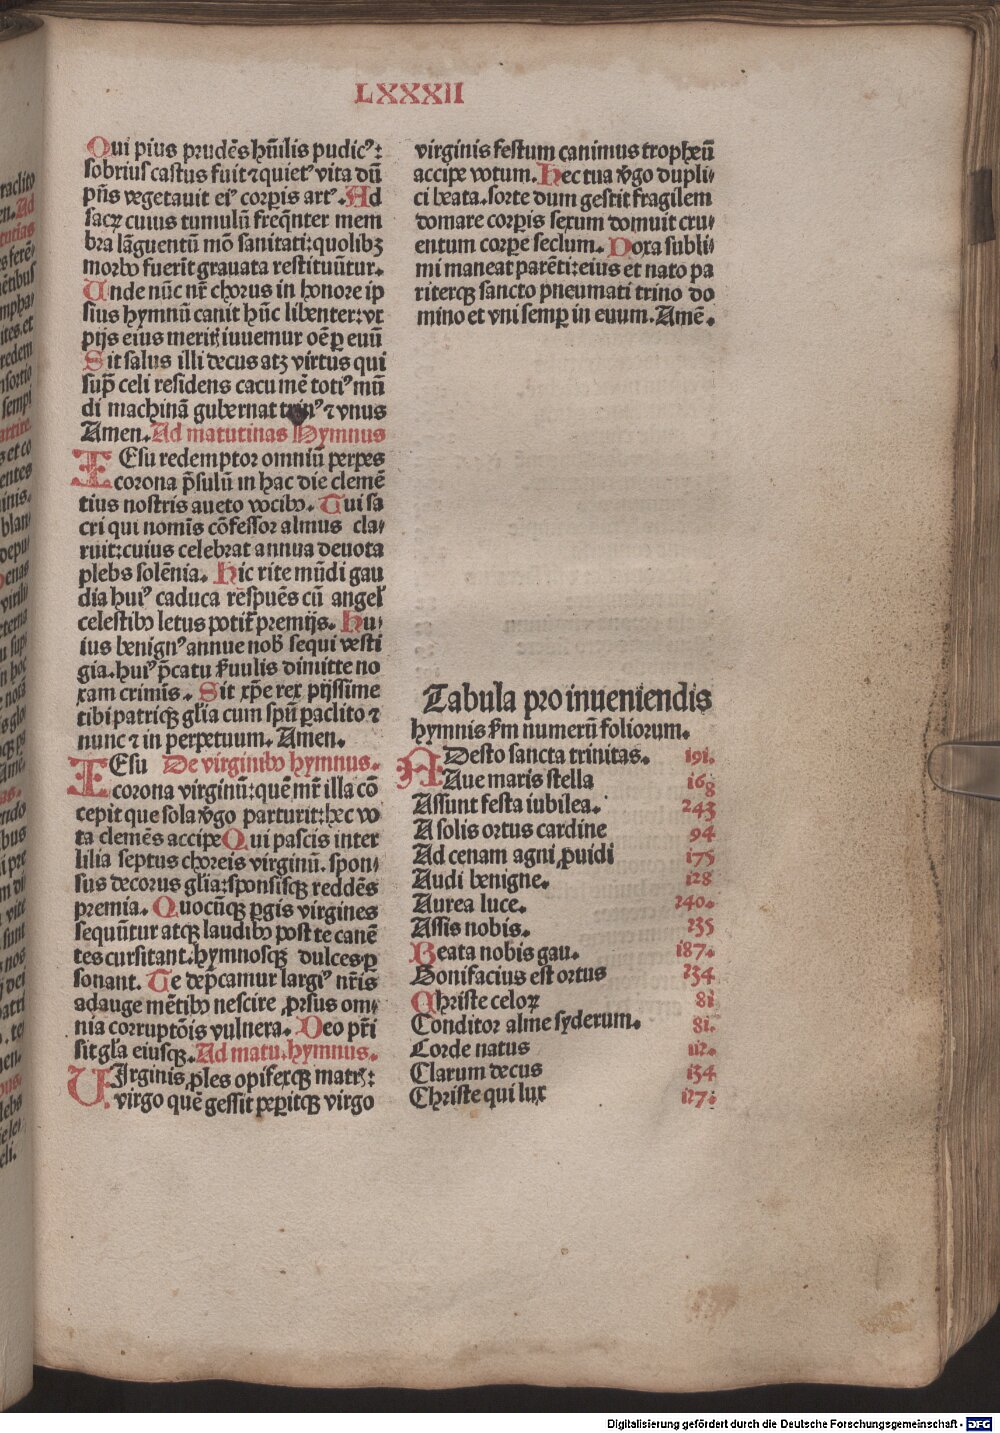 LXXXII
Qui pius prudẽs hũilis pudicꝰ:
sobrius castus fuit ⁊ quietꝰ vita dũ
p̃ñs vegetauit eiꝰ corp̱is artꝰ. Ad
sacꝝ cuius tumulũ freq̃nter mem
bra lãguentũ mõ sanitati: quolibꝫ
morbo fuerĩt grauata restituũtur.
Unde nũc nr̃ chorus in honore ip
sius hymnũ canit hũc libenter: vt
pijs eius meritꝭ iuuemur oẽ ꝑ euũ
Sit salus illi decus atꝫ virtus qui
sup̃ celi residens cacumẽ totiꝰ mũ
di machinã gubernat trinꝰ ⁊ vnus
Amen. Ad matutinas Hymnus
IEsu redemptor omniũ perpes
corona p̃sulũ in hac die clemẽ
tius nostris aueto vocibꝰ. Tui sa
cri qui nomĩs cõfessor almus cla⸗
ruit: cuius celebrat annua deuota
plebs solẽnia. Hic rite mũdi gau
dia huiꝰ caduca respuẽs cũ angelꝭ
celestibꝰ letus potit̃ premijs. Hu⸗
ius benignꝰ annue nob̃ sequi vesti
gia. huiꝰ p̃catu f̃uulis dimitte no
xam crimĩs. Sit xp̃e rex pijssime
tibi patriqꝫ gl̃ia cum sp̃ũ ꝑaclito ⁊
nunc ⁊ in perpetuum. Amen.
IEsu De virginibꝰ hymnus.
corona virginũ: quẽ mr̃ illa cõ
cepit que sola v̾go parturit: hec vo
ta clemẽs accipe Qui pascis inter
lilia septus choreis virginũ. spon⸗
sus decorus gl̃ia: sponsisqꝫ reddẽs
premia. Quocũqꝫ ꝑgis virgines
sequũtur atqꝫ laudibꝰ post te canẽ
tes cursitant. hymnosqꝫ dulces ꝑ
sonant. Te dep̃camur largiꝰ nr̃is
adauge mẽtibꝰ nescire ꝓrsus om⸗
nia corruptõis vulnera. Deo pr̃i
sit gl̃a eiusqꝫ. Ad matu. hymnus.
VIrginis ꝓles opifexqꝫ matrꝭ:
virgo quẽ gessit peꝑitqꝫ virgo
virginis festum canimus tropheũ
accipe votum. Hec tua v̾go dupli⸗
ci beata. sorte dum gestit fragilem
domare corp̱is sexum domuit cru⸗
entum corpe seclum. Doxa subli⸗
mi maneat parẽti: eius et nato pa
riterqꝫ sancto pneumati trino do
mino et vni semꝑ in euum. Amẽ.
Tabula pro inueniendis
hymnis s̃m numerũ foliorum.
ADesto sancta trinitas. 191.
Aue maris stella 168
Assunt festa iubilea. 243
A solis ortus cardine 94
Ad cenam agni ꝓuidi 175
Audi benigne. 128
Aurea luce. 240.
Assis nobis. 235
Beata nobis gau. 187.
Bonifacius est ortus 234
Christe celoꝝ 81
Conditor alme syderum. 81.
Corde natus 112.
Clarum decus 134
Christe qui lux 127.
Digitalisierung gefördert durch die Deutsche Forschungsgemeinschaft - DFG